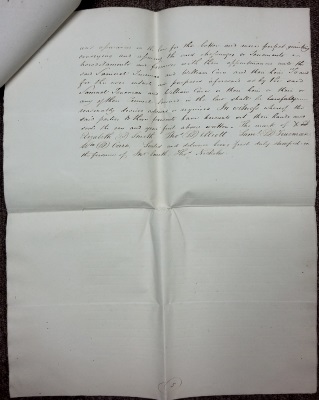 and assurances in the law for the better and more perfect
conveying and assuring the said Messuages or Tenements
hereditaments and premises with their appurtenances unto the
said Samuel Freeman and William Crew and their heirs
for the uses intents and purposes aforesaid as by the said
Samuel Freeman and William Crew or their heirs or their or
any of their Counsel learned in the law shall be lawfully
reasonably devised advised or required In Witness whereof the
said parties to these presents have hereunto set their hands and
seals the day and year first above written. The mark of
Elizabeth Smith Freeman
Wm Crew Sealed and delivered being first duly stamped in
the presence of Smith Thos Nicholls
(5)